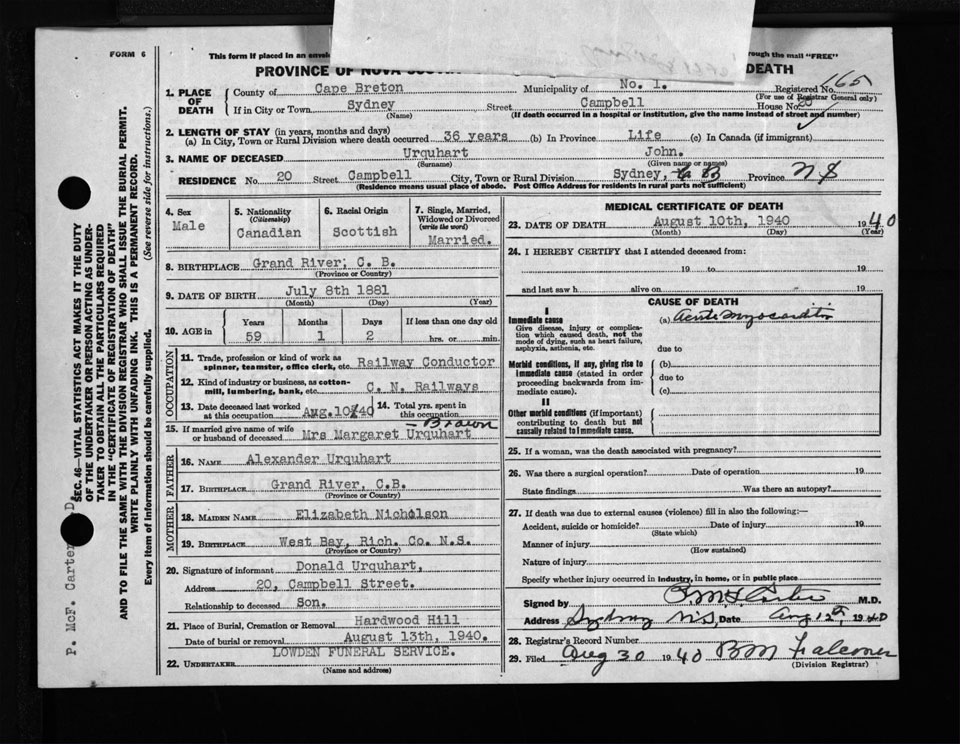 FORM 6
This form if placed in an
through the mail "FREE"
PROVINCE OF NOVA
DEATH
1. PLACE OF DEATH County of Cape Breton Municipality of No. 1. Registered No. 165
(For use of Registrar General only)
If in City or Town Sydney Street Campbell House No. 20
(Name) (If death occurred in a hospital or institution, give the name instead of street and number)
2. LENGTH OF STAY (in years, months and days)
(a) In City, Town or Rural Division where death occurred 36 years (b) In Province Life (c) In Canada (if immigrant)
3. NAME OF DECEASED Urquhart John.
(Surname) (Given name or names)
RESIDENCE No. 20 Street Campbell City, Town or Rural Division Sydney, C B Province N S
(Residence means usual place of abode. Post Office Address for residents in rural parts not sufficient)
4. Sex Male
5. Nationality (Citizenship) Canadian
6. Racial Origin Scottish
7. Single, Married, Widowed or Divorced (write the word) Married.
8. BIRTHPLACE Grand River, C. B.
(Province or Country)
9. DATE OF BIRTH July 8th 1881
(Month) (Day) (Year)
10. AGE in Years 59 Months 1 Days 2 If less than one day old hrs. or min.
OCCUPATION
11. Trade, profession or kind of work as spinner, teamster, office clerk, etc. Railway Conductor
12. Kind of industry or business, as cotton-mill, lumbering, bank, etc. C. N. Railways
13. Date deceased last worked at this occupation Aug. 10/40 14. Total yrs. spent in this occupation
15. If married give name of wife or husband of deceased Mrs Margaret Urquhart - Brown
FATHER
16. NAME Alexander Urquhart
17. BIRTHPLACE Grand River, C.B.
(Province or Country)
MOTHER
18. MAIDEN NAME Elizabeth Nicholson
19. BIRTHPLACE West Bay, Rich. Co. N.S.
(Province or Country)
20. Signature of informant Donald Urquhart,
Address 20, Campbell Street.
Relationship to deceased Son.
21. Place of Burial, Cremation or Removal Hardwood Hill
Date of burial or removal August 13th, 1940.
22. UNDERTAKER LOWDEN FUNERAL SERVICE.
(Name and address)
MEDICAL CERTIFICATE OF DEATH
23. DATE OF DEATH August 10th, 1940 1940
(Month) (Day) (Year)
24. I HEREBY CERTIFY that I attended deceased from:
19 to 19
and last saw h alive on 19
CAUSE OF DEATH
I
Immediate cause (a) Acute Myocarditis
Give disease, injury or complication which caused death, not the mode of dying, such as heart failure, asphyxia, asthenia, etc.
due to
Morbid conditions, if any, giving rise to immediate cause (stated in order proceeding backwards from immediate cause).
(b)
due to
(c)
II
Other morbid conditions (if important) contributing to death but not causally related to immediate cause.
25. If a woman, was the death associated with pregnancy?
26. Was there a surgical operation? Date of operation 19
State findings Was there an autopsy?
27. If death was due to external causes (violence) fill in also the following:—
Accident, suicide or homicide? Date of injury 19
(State which)
Manner of injury
(How sustained)
Nature of injury
Specify whether injury occurred in industry, in home, or in public place
Signed by P McF Carter M.D.
Address Sydney NS Date Aug 12th, 1940
28. Registrar's Record Number
29. Filed Aug 30 1940 BM Falconer
(Division Registrar)
SEC. 46—VITAL STATISTICS ACT MAKES IT THE DUTY
OF THE UNDERTAKER OR PERSON ACTING AS UNDER-
TAKER TO OBTAIN ALL THE PARTICULARS REQUIRED
IN THE "CERTIFICATE OF REGISTRATION OF DEATH"
AND TO FILE THE SAME WITH THE DIVISION REGISTRAR WHO SHALL ISSUE THE BURIAL PERMIT.
WRITE PLAINLY WITH UNFADING INK. THIS IS A PERMANENT RECORD.
Every item of information should be carefully supplied. (See reverse side for instructions.)
P. McF. Carter D.